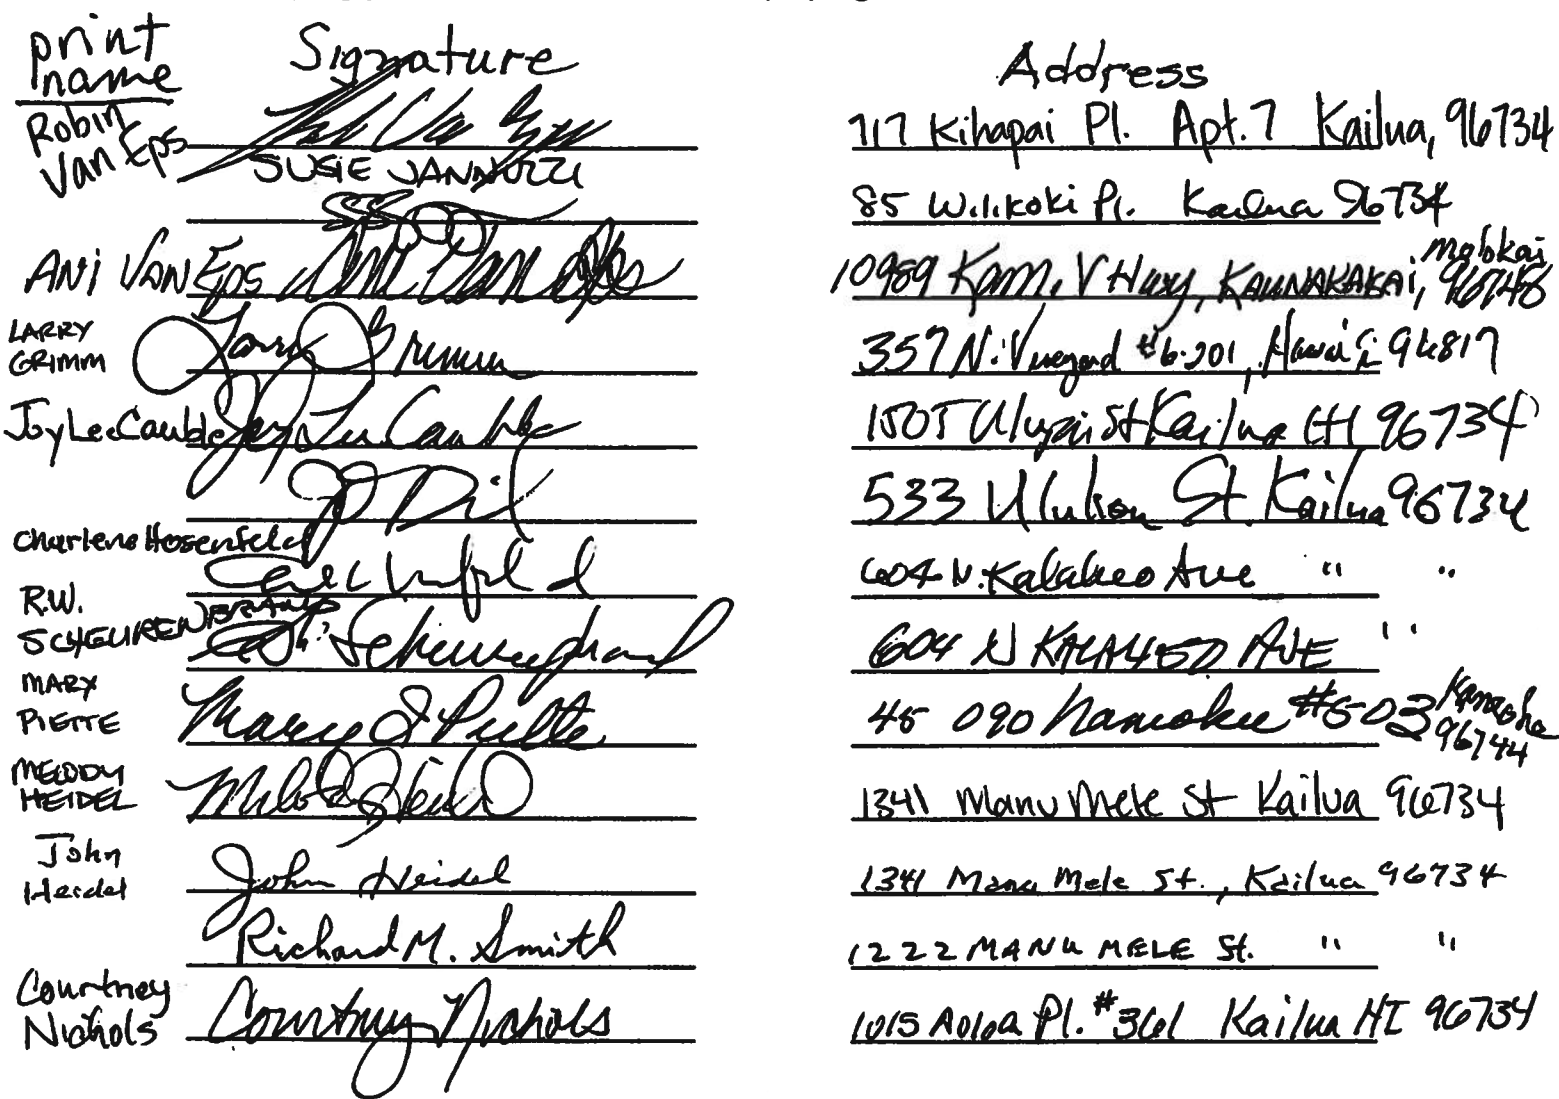 print name Signature Address
Robin Van Eps 717 Kihapai Pl. Apt. 7 Kailua, 96734
SUSIE JANNUZZI
85 Wilikoki Pl. Kailua 96734
ANi VAN Eps Ani Van Eps 10989 Kam. V Hwy, KAUNAKAKAi, Molokai 96748
LARRY GRIMM Larry Grimm 357 N. Vineyard #6-201, Hawai'i 96817
Joy Lee Cauble Joy Lee Cauble 1505 Ulupii St Kailua HI 96734
533 St. Kailua 96734
Charlene Hosenfeld 604 N. Kalaheo Ave " "
R.W. SCHEURENBRAND 604 N KALAHEO AVE "
MARY PIETTE Mary J Piette 45 090 Namoku #503 Kaneohe 96744
MELODY HEIDEL 1341 Manu Mele St Kailua 96734
John Heidel John Heidel 1341 Manu Mele St., Kailua 96734
Richard M. Smith 1222 MANU MELE St. " "
Courtney Nichols Courtney Nichols 1015 Aoloa Pl. #361 Kailua HI 96734